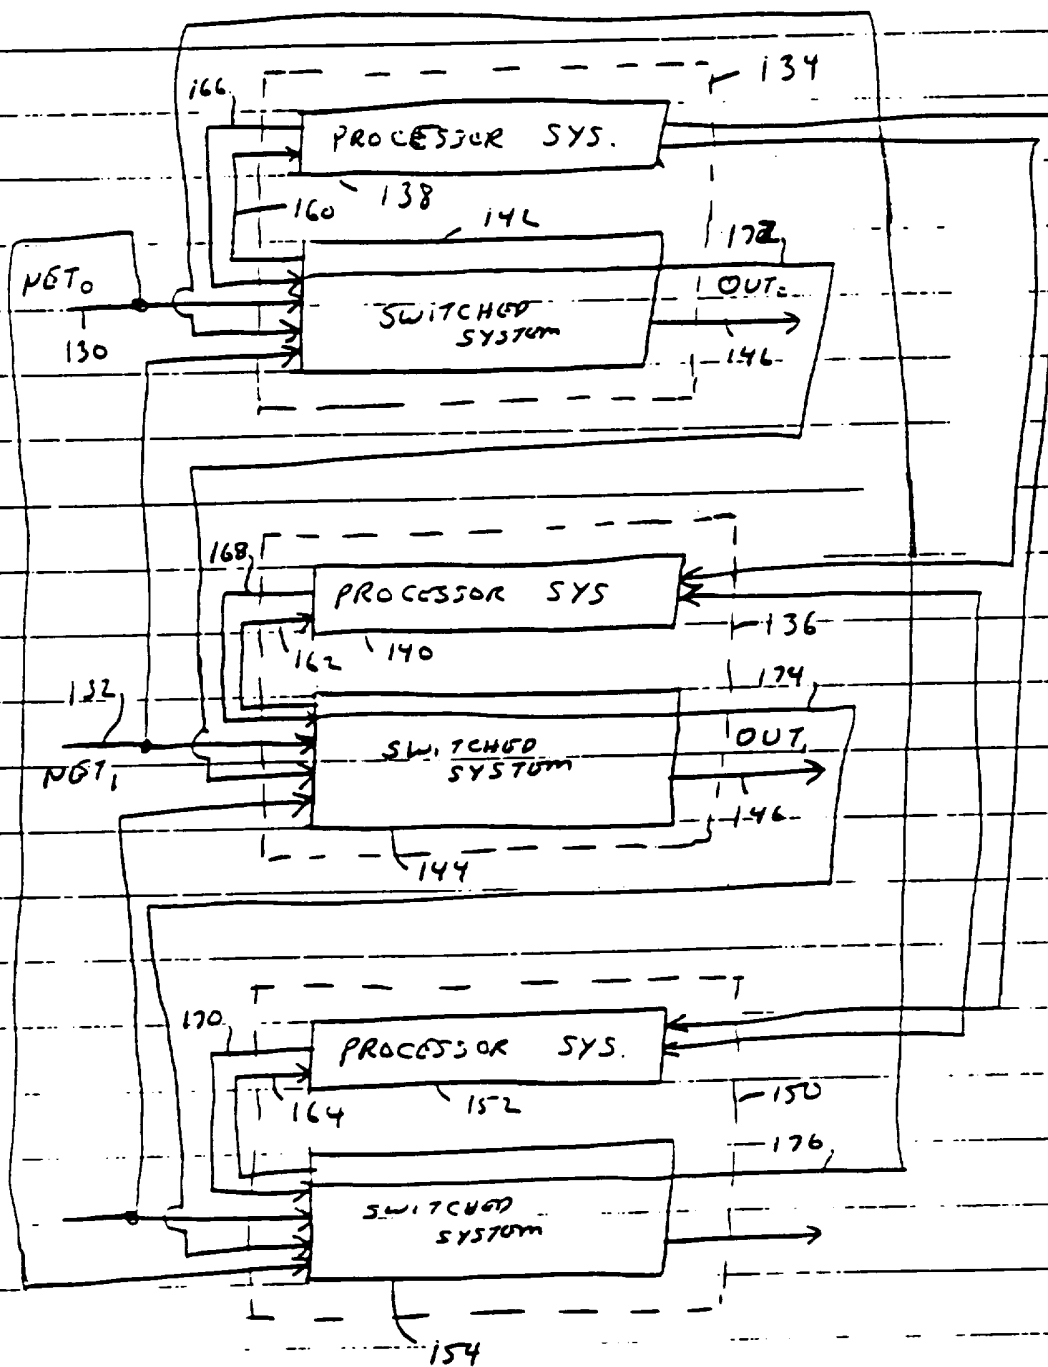 134
166
PROCESSOR SYS.
138
160
142
172
NET₀
OUT₀
SWITCHED
SYSTEM
130
146
168
PROCESSOR SYS
136
162
140
132
174
SWITCHED
SYSTEM
OUT₁
NET₁
146
144
170
PROCESSOR SYS.
164
152
150
176
SWITCHED
SYSTEM
154